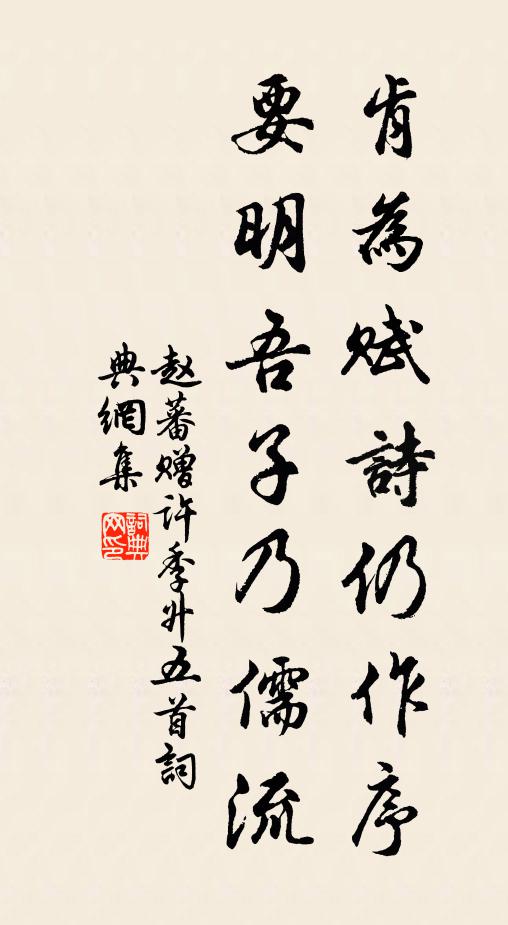 肯為赋詩仍作序
要明吾子乃儒流
赵蕃赠许季升五首詞
典網集
詞典網印